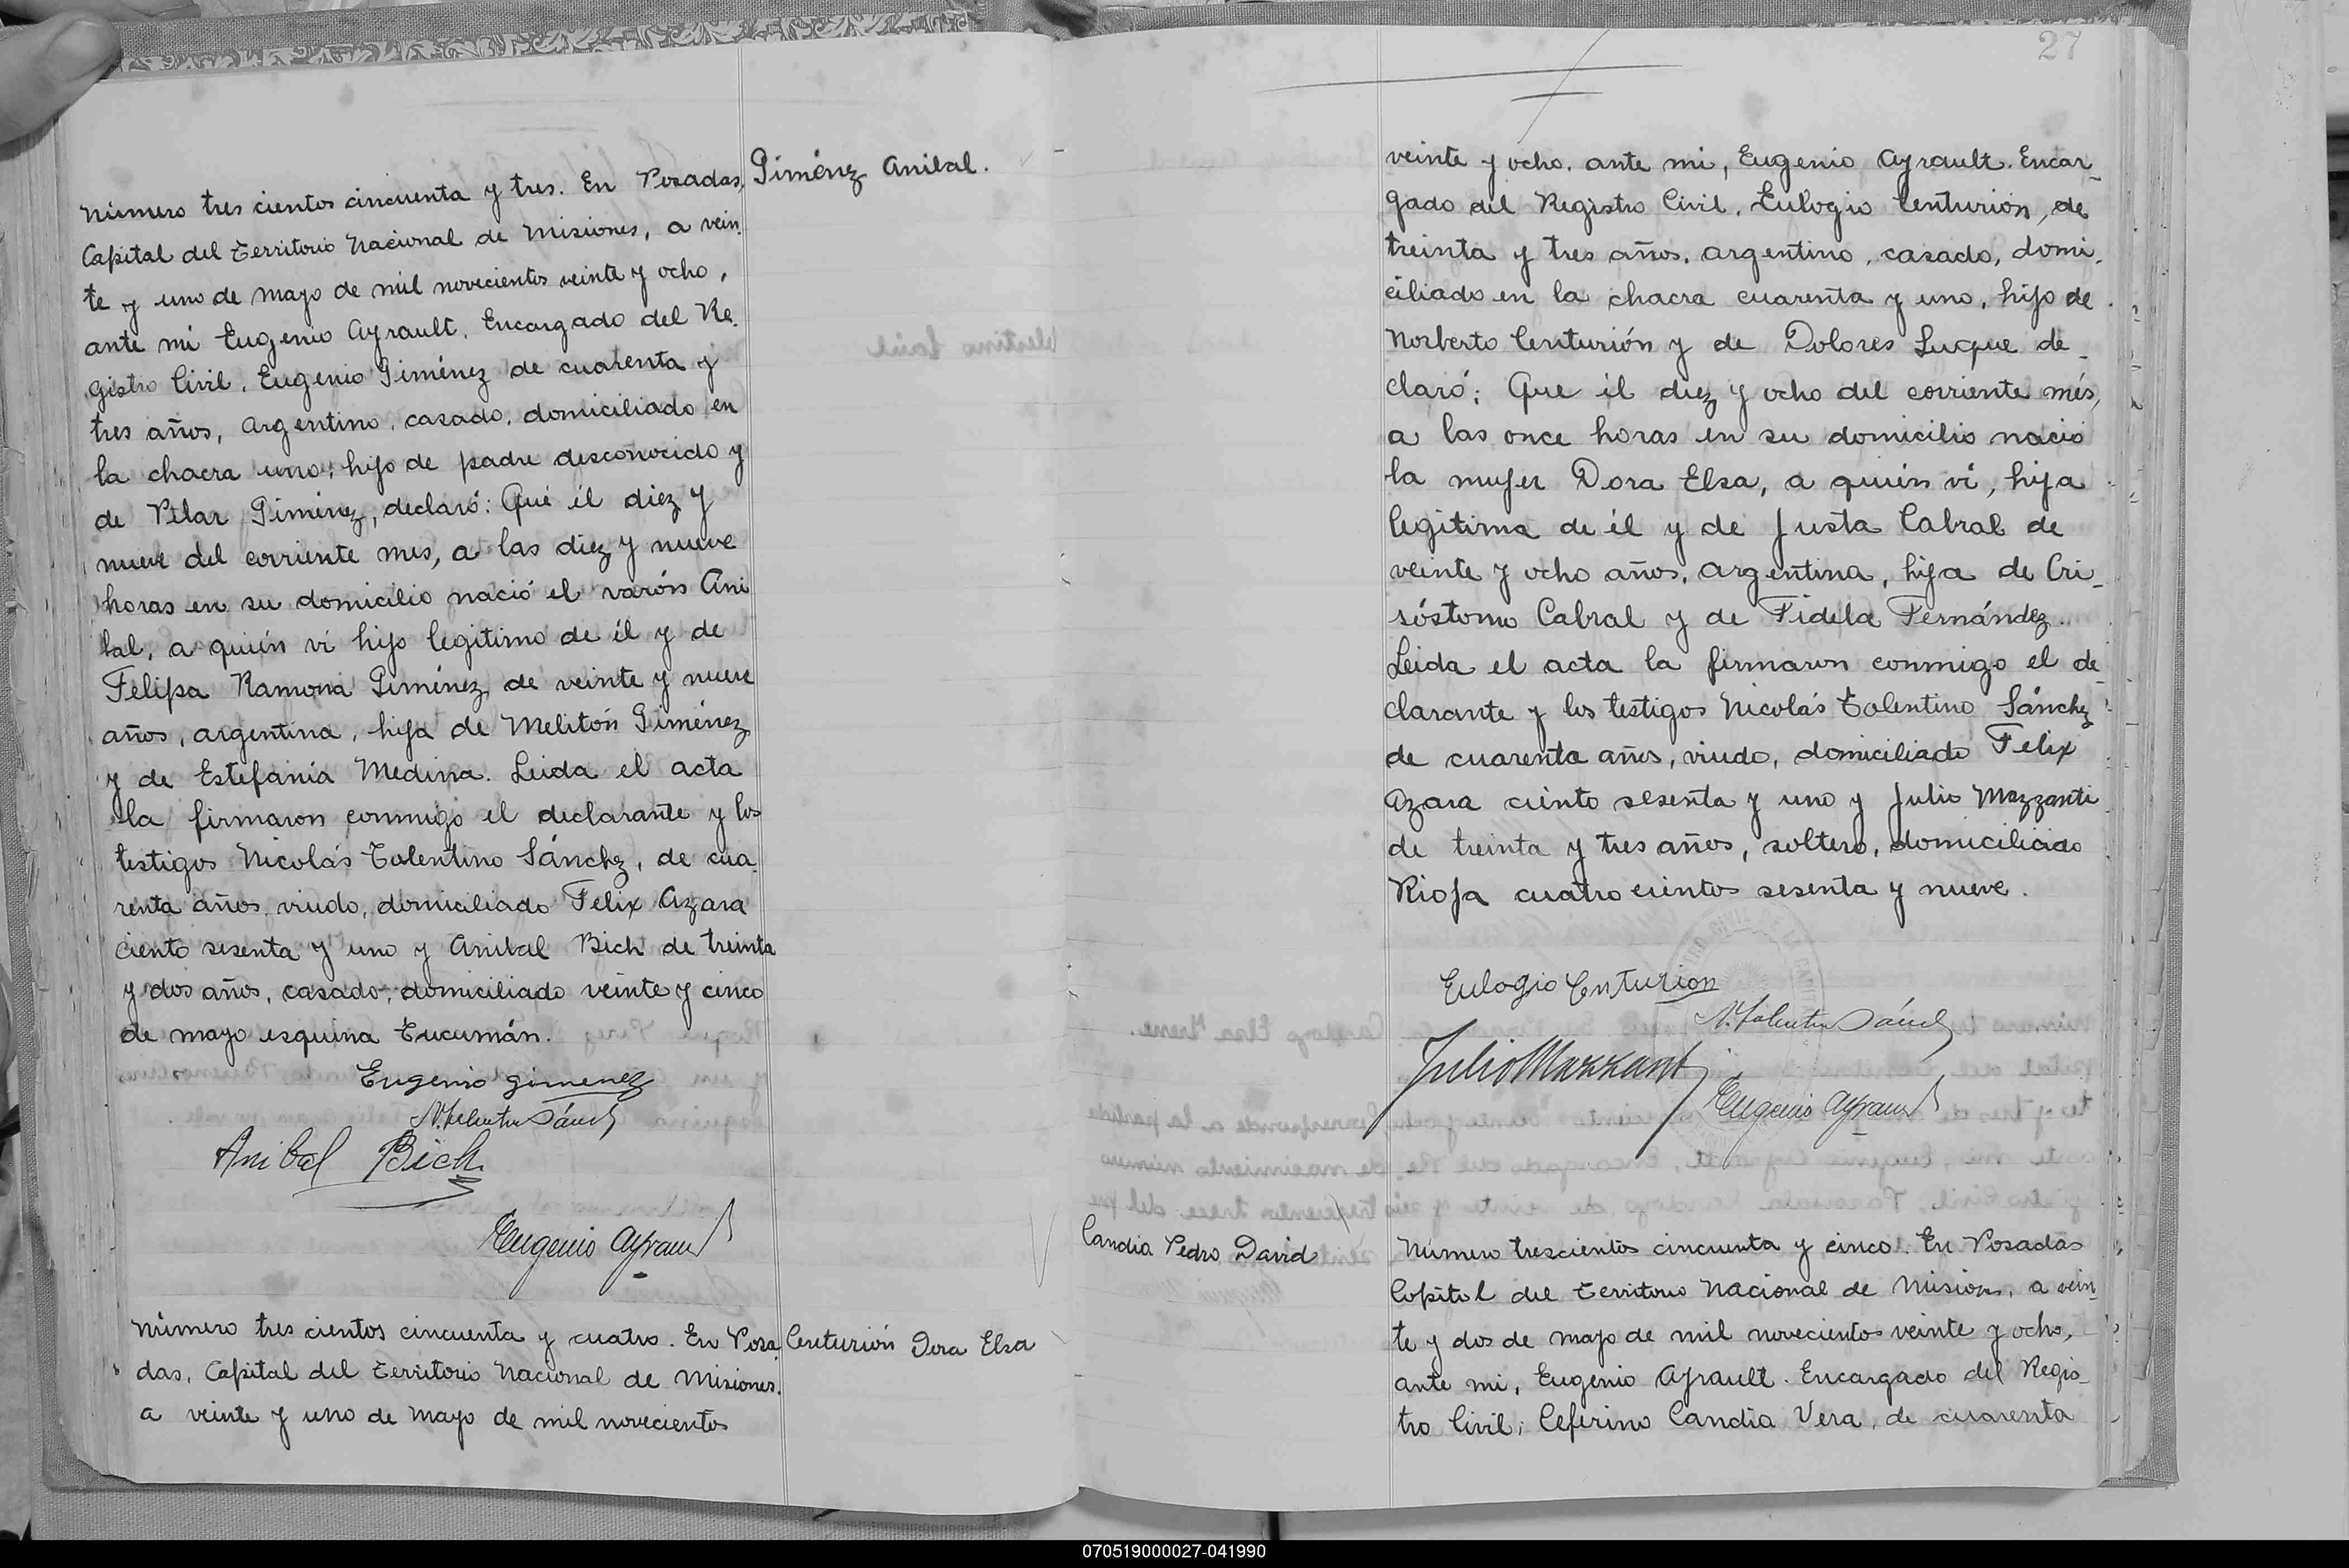 Giménez Anibal.
Número tres cientos cincuenta y tres. En Posadas,
Capital del Territorio Nacional de Misiones, a vein
te y uno de mayo de mil novecientos veinte y ocho,
ante mi Eugenio Ayrault. Encargado del Re
gistro Civil. Eugenio Giménez de cuarenta y
tres años, Argentino, casado, domiciliado en
la chacra uno; hijo de padre desconocido y
de Pilar Giménez, declaró: Qué él diez y
nueve del corriente mes, a las diez y nueve
horas en su domicilio nació el varón Ani
bal, a quién ví hijo legítimo de él y de
Felipa Ramona Giménez de veinte y nueve
años, argentina, hija de Melitón Giménez
y de Estefanía Medina. Leida el acta
la firmaron conmigo el declarante y los
testigos Nicolás Tolentino Sánchez, de cua
renta años, viudo, domiciliado Felix Azara
ciento sesenta y uno y Anibal Bich de treinta
y dos años, casado, domiciliado veinte y cinco
de mayo esquina Tucumán.
Eugenio gimenez
N. Tolentino Sánchez
Anibal Bich
Eugenio Ayrault
Centurión Dora Elsa
Número tres cientos cincuenta y cuatro. En Posa
das, Capital del Territorio Nacional de Misiones.
a veinte y uno de mayo de mil novecientos
27
veinte y ocho. ante mi, Eugenio Ayrault. Encar_
gado del Registro Civil. Eulogio Centurión, de
treinta y tres años, argentino, casado, domi_
ciliado en la chacra cuarenta y uno, hijo de
Norberto Centurión y de Dolores Luque de_
claró: Que él diez y ocho del corriente més,
a las once horas en su domicilio nació
la mujer Dora Elsa, a quién ví, hija
legítima de él y de Justa Cabral de
veinte y ocho años, argentina, hija de Cri_
sóstomo Cabral y de Fidela Fernández.
Leida el acta la firmaron conmigo el de_
clarante y los testigos Nicolás Tolentino Sánchez
de cuarenta años, viudo, domiciliado Felix
Azara ciento sesenta y uno y Julio Mazzanti
de treinta y tres años, soltero, domiciliado
Rioja cuatro cientos sesenta y nueve.
Eulogio Centurion
N. Tolentino Sánchez
Julio Mazzanti
Eugenio Ayrault
Candia Pedro David
Número trescientos cincuenta y cinco. En Posadas
Capital del Territorio Nacional de Misiones, a vein_
te y dos de mayo de mil novecientos veinte y ocho,
ante mi, Eugenio Ayrault. Encargado del Regis_
tro Civil; Ceferino Candia Vera, de cuarenta
070519000027-041990